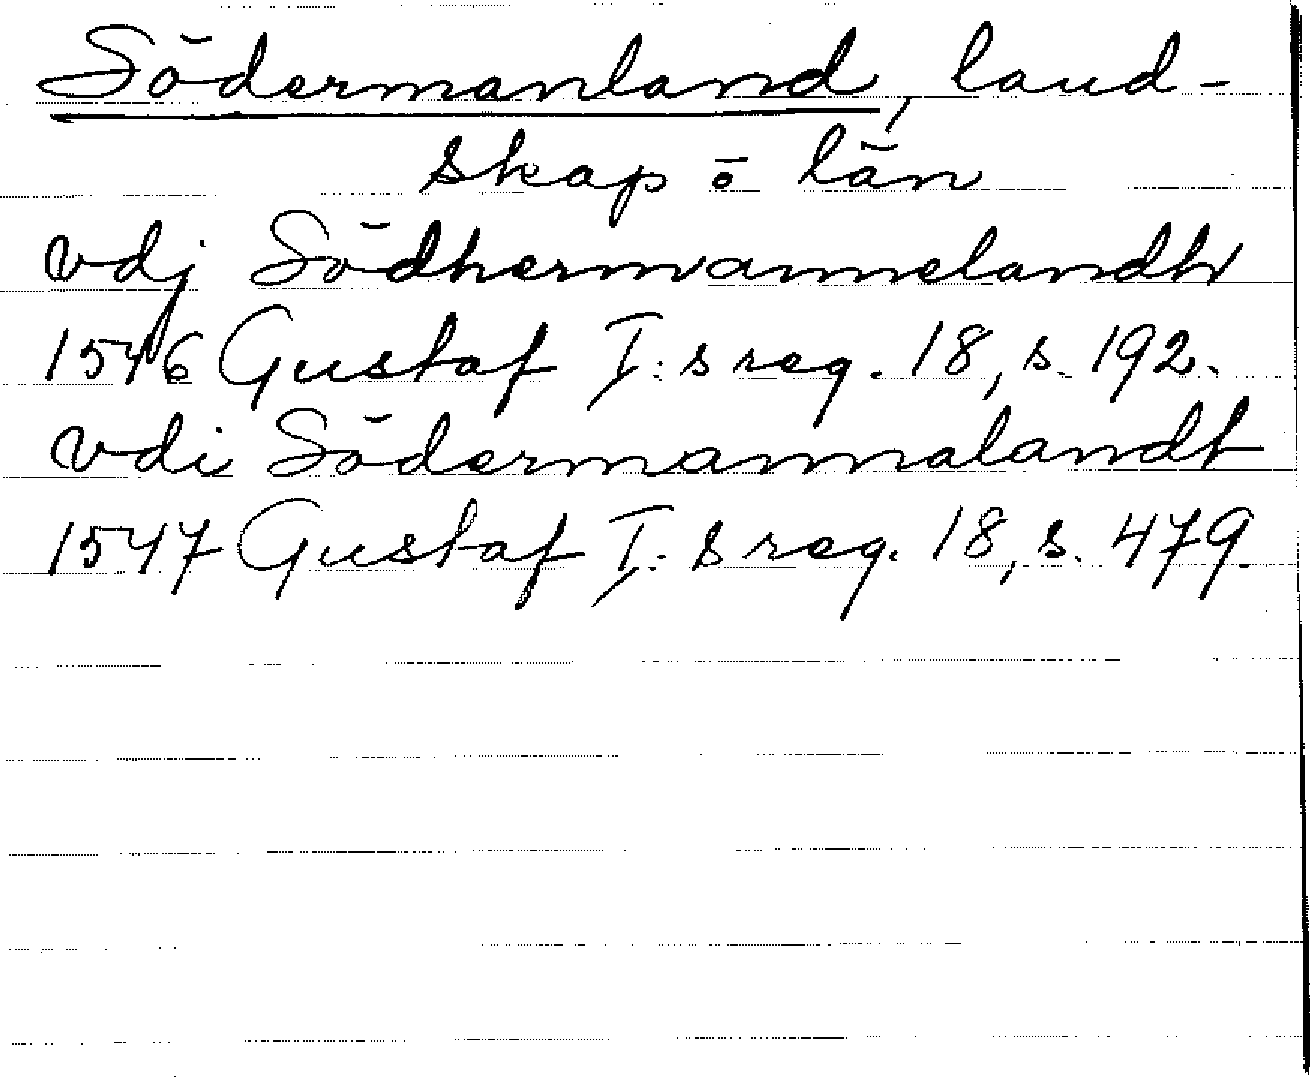 Södermanland, land-
skap o län
vdj Södhermannelandh
1546 Gustaf I:s reg. 18, s. 192.
vdi Södermannalandt
1547 Gustaf I:s reg. 18, s. 479.